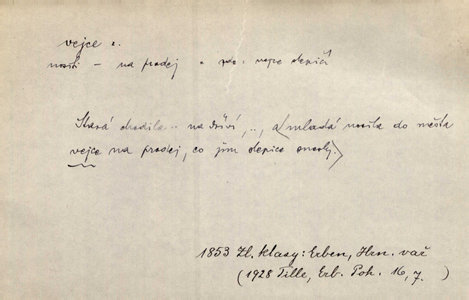 vejce s.
nositi – na prodej vejce slepičí
Stará chodila .. na dříví, .., a mladá nosila do města
vejce na prodej, co jim slepice snesly.
1853 Zl. klasy: Erben, Hrn. vař
(1928 Tille, Erb. Poh. 16, 7.)